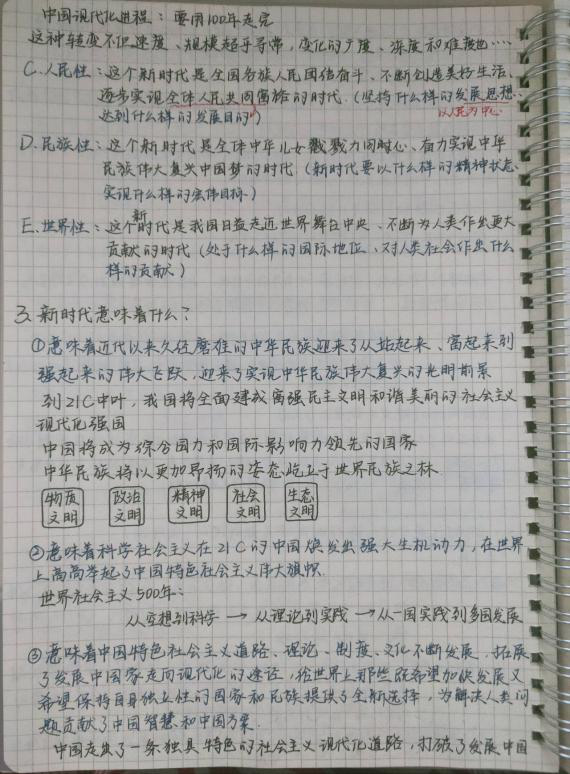 中国现代化进程：要用100年走完
这种转变不但速度、规模超乎寻常，变化的广度、深度和难度也……
C.人民性：这个新时代是全国各族人民团结奋斗、不断创造美好生活、
逐步实现全体人民共同富裕的时代.（坚持什么样的发展思想、
达到什么样的发展目的）
以人民为中心
D.民族性：这个新时代是全体中华儿女戮力同心、奋力实现中华
民族伟大复兴中国梦的时代.（新时代要以什么样的精神状态
实现什么样的宏伟目标）
E.世界性：这个新时代是我国日益走近世界舞台中央、不断为人类作出更大
贡献的时代（处于什么样的国际地位、对人类社会作出什么
样的贡献）
3.新时代意味着什么？
①意味着近代以来久经磨难的中华民族迎来了从站起来、富起来到
强起来的伟大飞跃，迎来了实现中华民族伟大复兴的光明前景
到21C中叶，我国将全面建成富强民主文明和谐美丽的社会主义
现代化强国
中国将成为综合国力和国际影响力领先的国家
中华民族将以更加昂扬的姿态屹立于世界民族之林
物质文明 政治文明 精神文明 社会文明 生态文明
②意味着科学社会主义在21C的中国焕发出强大生机动力，在世界
上高高举起了中国特色社会主义伟大旗帜.
世界社会主义500年：
从空想到科学 → 从理论到实践 → 从一国实践到多国发展
③意味着中国特色社会主义道路、理论、制度、文化不断发展，拓展
了发展中国家走向现代化的途径，给世界上那些既希望加快发展又
希望保持自身独立性的国家和民族提供了全新选择，为解决人类问
题贡献了中国智慧和中国方案.
中国走出了一条独具特色的社会主义现代化道路，打破了发展中国